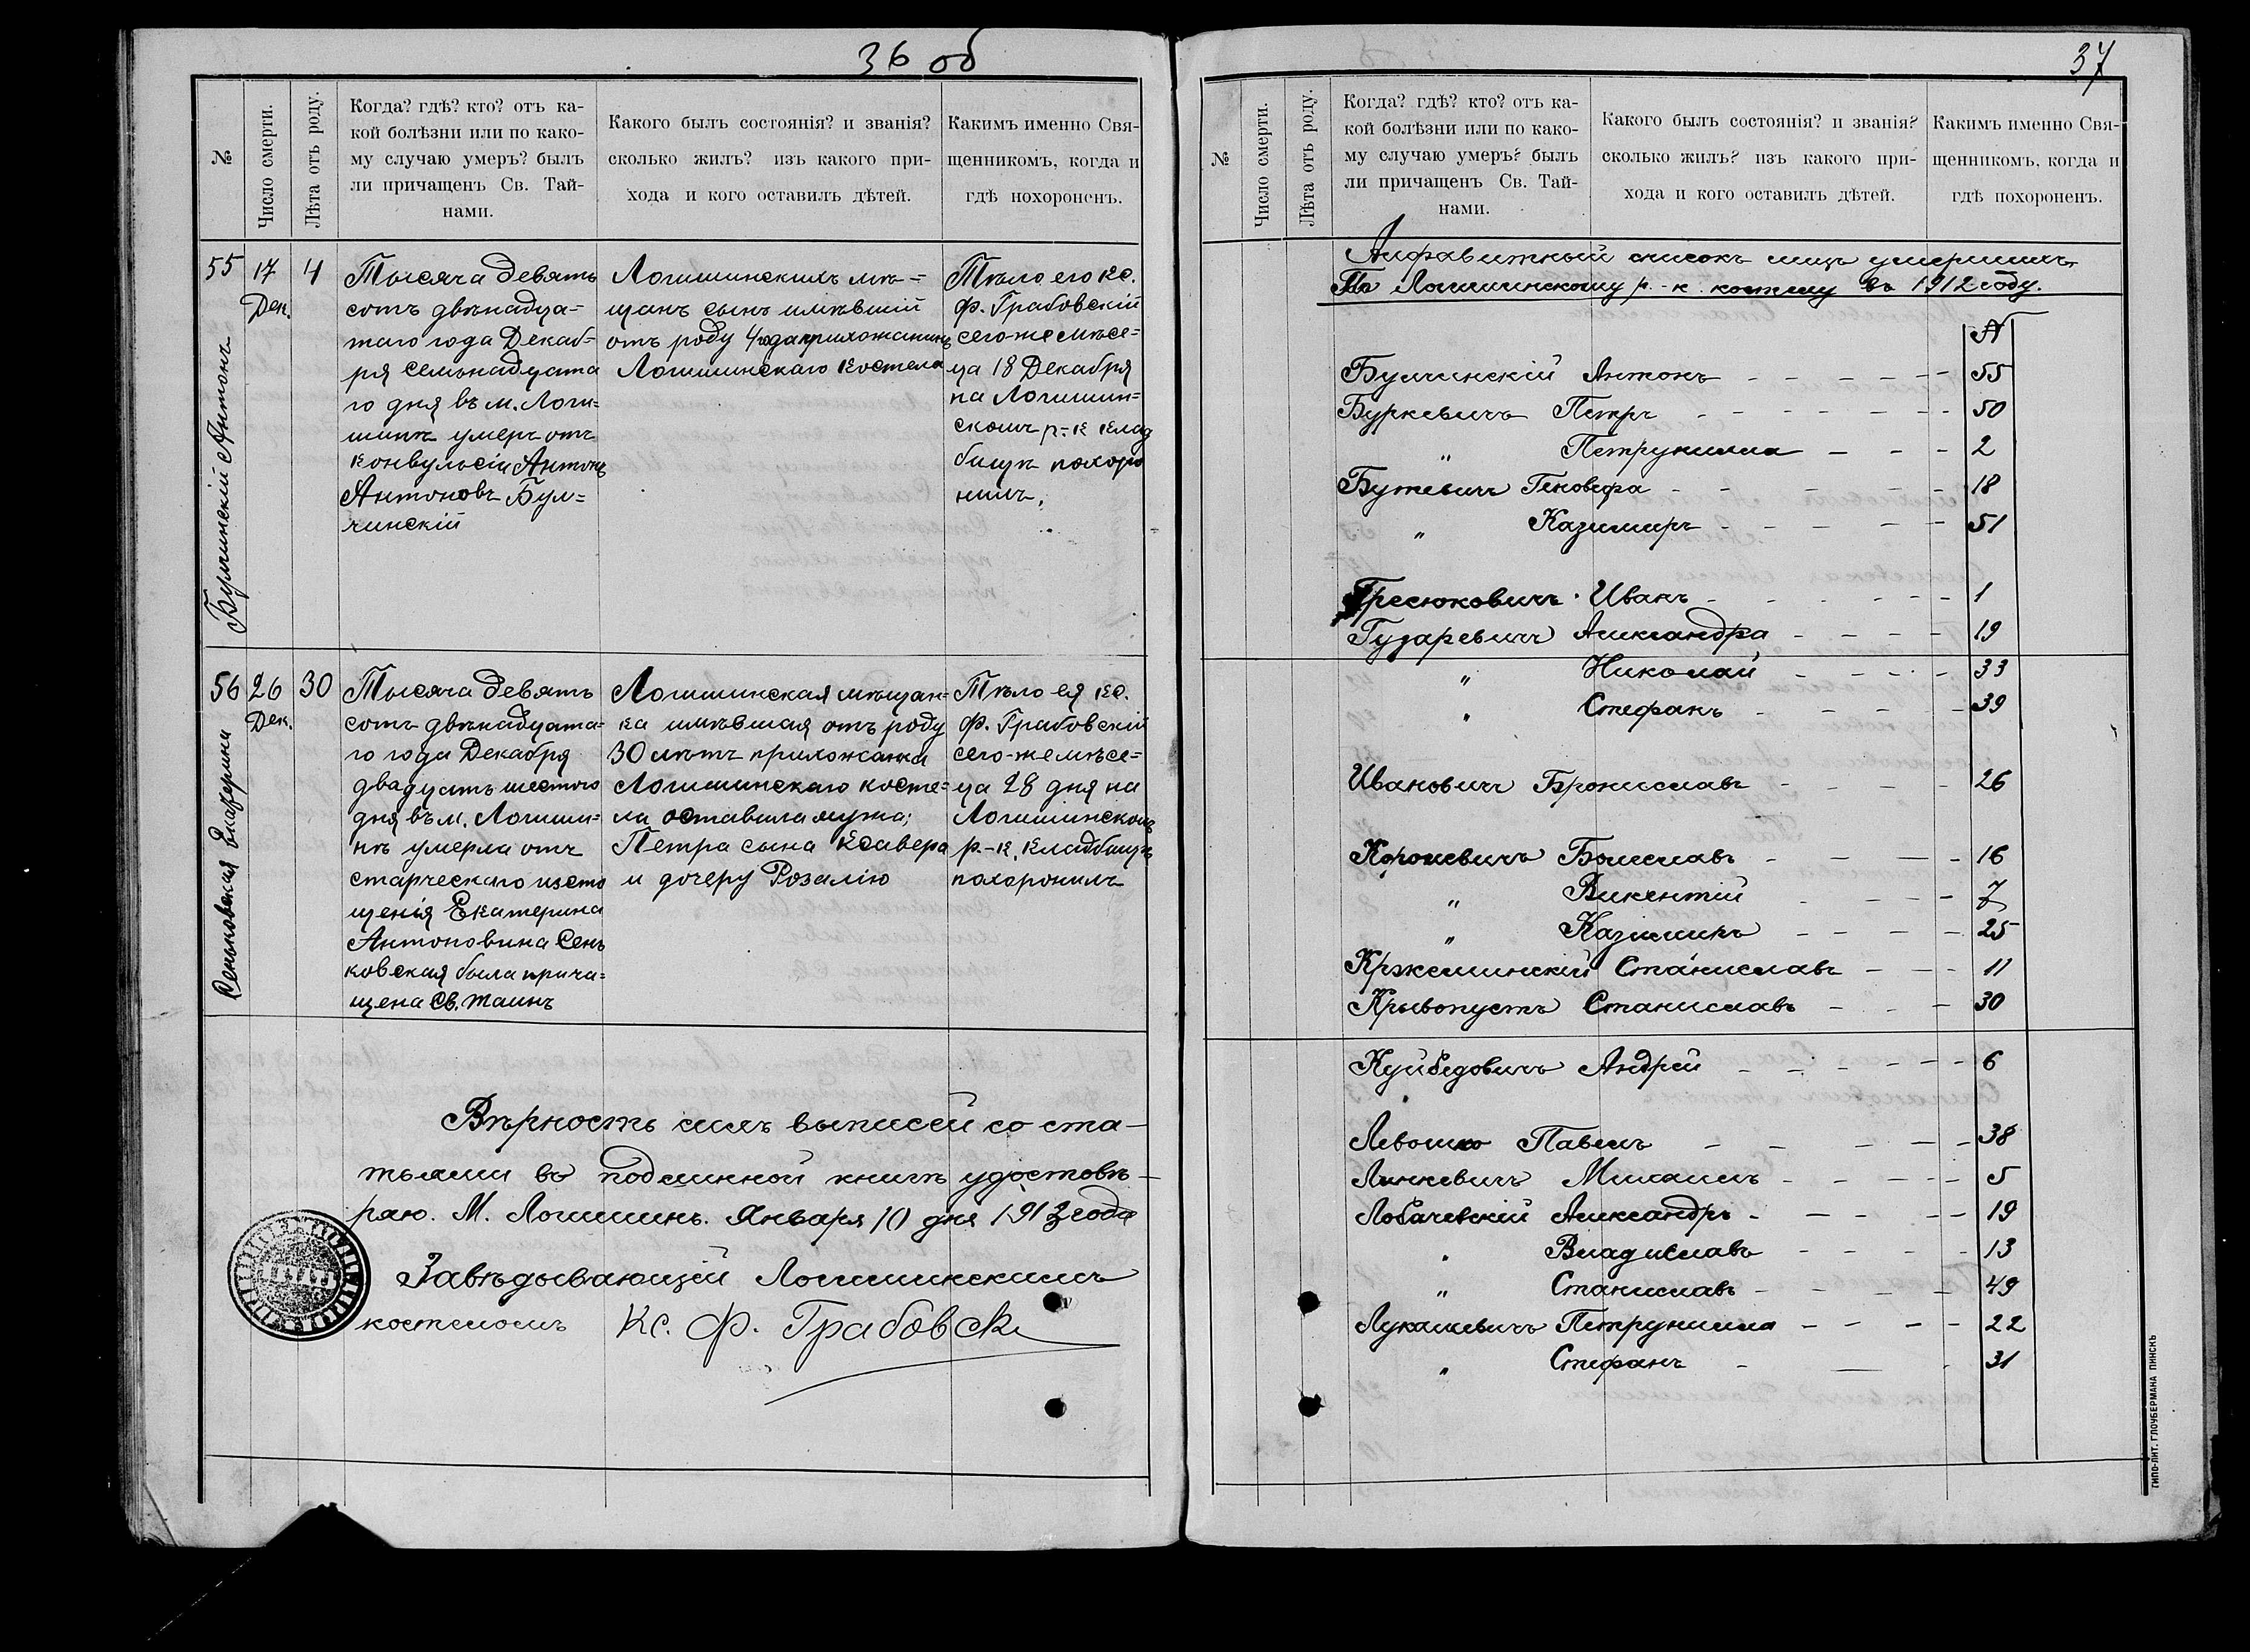 36 об
№
Число смерти.
Лѣта отъ роду.
Когда? гдѣ? кто? отъ ка-
кой болѣзни или по како-
му случаю умеръ? былъ
ли причащенъ Св. Тай-
нами.
Какого былъ состоянія? и званія?
сколько жилъ? изъ какого при-
хода и кого оставилъ дѣтей.
Какимъ именно Свя-
щенникомъ, когда и
гдѣ похороненъ.
55
Булчинскій Антонъ
17
Дек.
4
Тысяча девять
сотъ двѣнадца-
таго года Декаб-
ря семьнадцата
го дня въ м. Логи=
шинѣ умеръ отъ
конвульсіи Антонъ
Антоновъ Бул=
чинскій
Логишинскихъ мѣ=
щанъ сынъ имѣвшій
отъ роду 4 года прихожанинъ
Логишинскаго костела
Тѣло его кс.
Ф. Грабовскій
сего-же мѣся=
ца 18 Декабря
на Логишин=
скомъ р.-к клад
бищѣ похоро
нилъ.
56
Сеньковская Екатерина
26
Дек.
30
Тысяча девять
сотъ двѣнадцата-
го года Декабря
двадцать шестого
дня въ м. Логиши=
нѣ умерла отъ
старческаго исто
щенія Екатерина
Антоновина Сень
ковская была прича=
щена Св. Таинъ
Логишинская мѣщан=
ка имѣвшая отъ роду
30 лѣтъ прихожанка
Логишинскаго косте=
ла оставила мужа;
Петра сына Ксавера
и дочеру Розалію
Тѣло ея кс.
Ф. Грабовскій
сего-же мѣся=
ца 28 дня на
Логишинскомъ
р.-к. кладбищѣ
похоронилъ
Вѣрность сихъ выписей со ста-
тьями въ подлинной книгѣ удостовѣ-
ряю. М. Логишинъ. Января 10 дня 1913 года
Завѣдывающій Логишинскимъ
костеломъ Кс. Ф. Грабовскі
37
№
Число смерти.
Лѣта отъ роду.
Когда? гдѣ? кто? отъ ка-
кой болѣзни или по како-
му случаю умеръ? былъ
ли причащенъ Св. Тай-
нами.
Какого былъ состоянія? и званія?
сколько жилъ? изъ какого при-
хода и кого оставилъ дѣтей.
Какимъ именно Свя-
щенникомъ, когда и
гдѣ похороненъ.
Алфавитный списокъ лицъ умершихъ
По Логишинскому р.-к. костелу въ 1912 году.
№
Булчинскій Антонъ - - - - - 55
Буркевичъ Петръ - - - - - - 50
" Петрунилла - - - 2
Бутевичъ Геновефа - - - - - 18
" Казимиръ - - - - - 51
Гресюковичъ Иванъ - - - - - - 1
Гузаревичъ Александра - - - - 19
" Николай - - - - 33
" Стефанъ - - - - - 39
Ивановичъ Брониславъ - - - - 26
Короневичъ Болеславъ - - - - 16
" Викентій - - - - 7
" Казимиръ - - - - 25
Кржеминскій Станиславъ - - - 11
Крывопустъ Станиславъ - - - 30
Куйбедовичъ Андрей - - - - - - 6
Левошко Павелъ - - - - - 38
Линкевичъ Михаилъ - - - - - 5
Лобачевскій Александръ - - - - - 19
" Владиславъ - - - - - 13
" Станиславъ - - - - - 49
Лукашевичъ Петрунилла - - - - 22
" Стефанъ - - - 31
ТИПО-ЛИТ. ГЛОУБЕРМАНА ПИНСКЪ